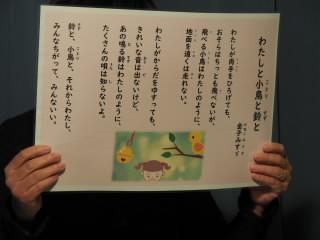 わたしと小鳥と鈴と
金子みすゞ
わたしが両手をひろげても、
おそらはちっとも飛べないが、
飛べる小鳥はわたしのように、
地面を速くは走れない。
わたしがからだをゆすっても、
きれいな音は出ないけど、
あの鳴る鈴はわたしのように、
たくさんの唄は知らないよ。
鈴と、小鳥と、それからわたし、
みんなちがって、みんないい。